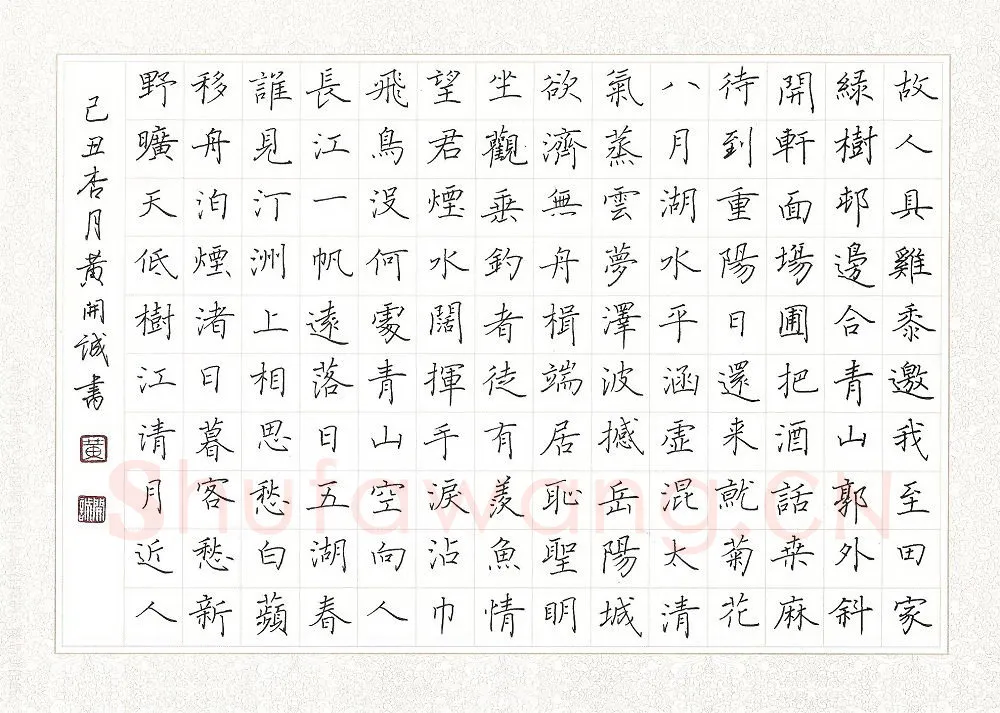 故人具雞黍邀我至田家
綠樹邨邊合青山郭外斜
開軒面場圃把酒話桒麻
待到重陽日還来就菊花
八月湖水平涵虛混太清
氣蒸雲夢澤波撼岳陽城
欲濟無舟楫端居恥聖明
坐觀垂釣者徒有羨魚情
望君煙水闊揮手淚沾巾
飛鳥沒何處青山空向人
長江一帆遠落日五湖春
誰見汀洲上相思愁白蘋
移舟泊煙渚日暮客愁新
野曠天低樹江清月近人
己丑杏月黃開誠書
黃
Shufawang.CN